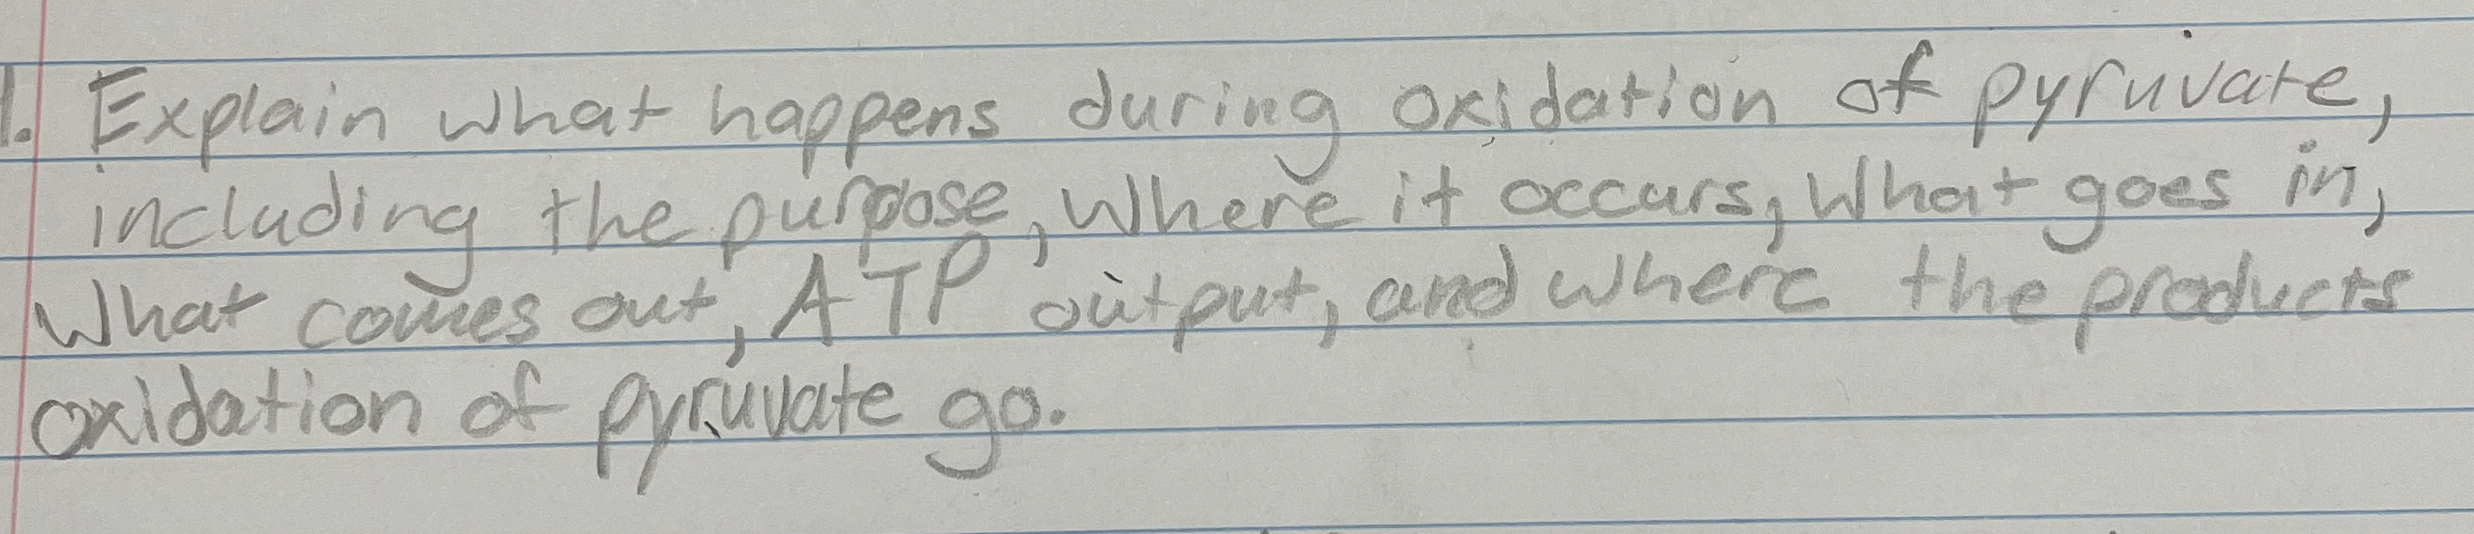 1. Explain what happens during oxidation of pyruvate,
including the purpose, where it occurs, what goes in,
what comes out, ATP output, and where the products
oxidation of pyruvate go.